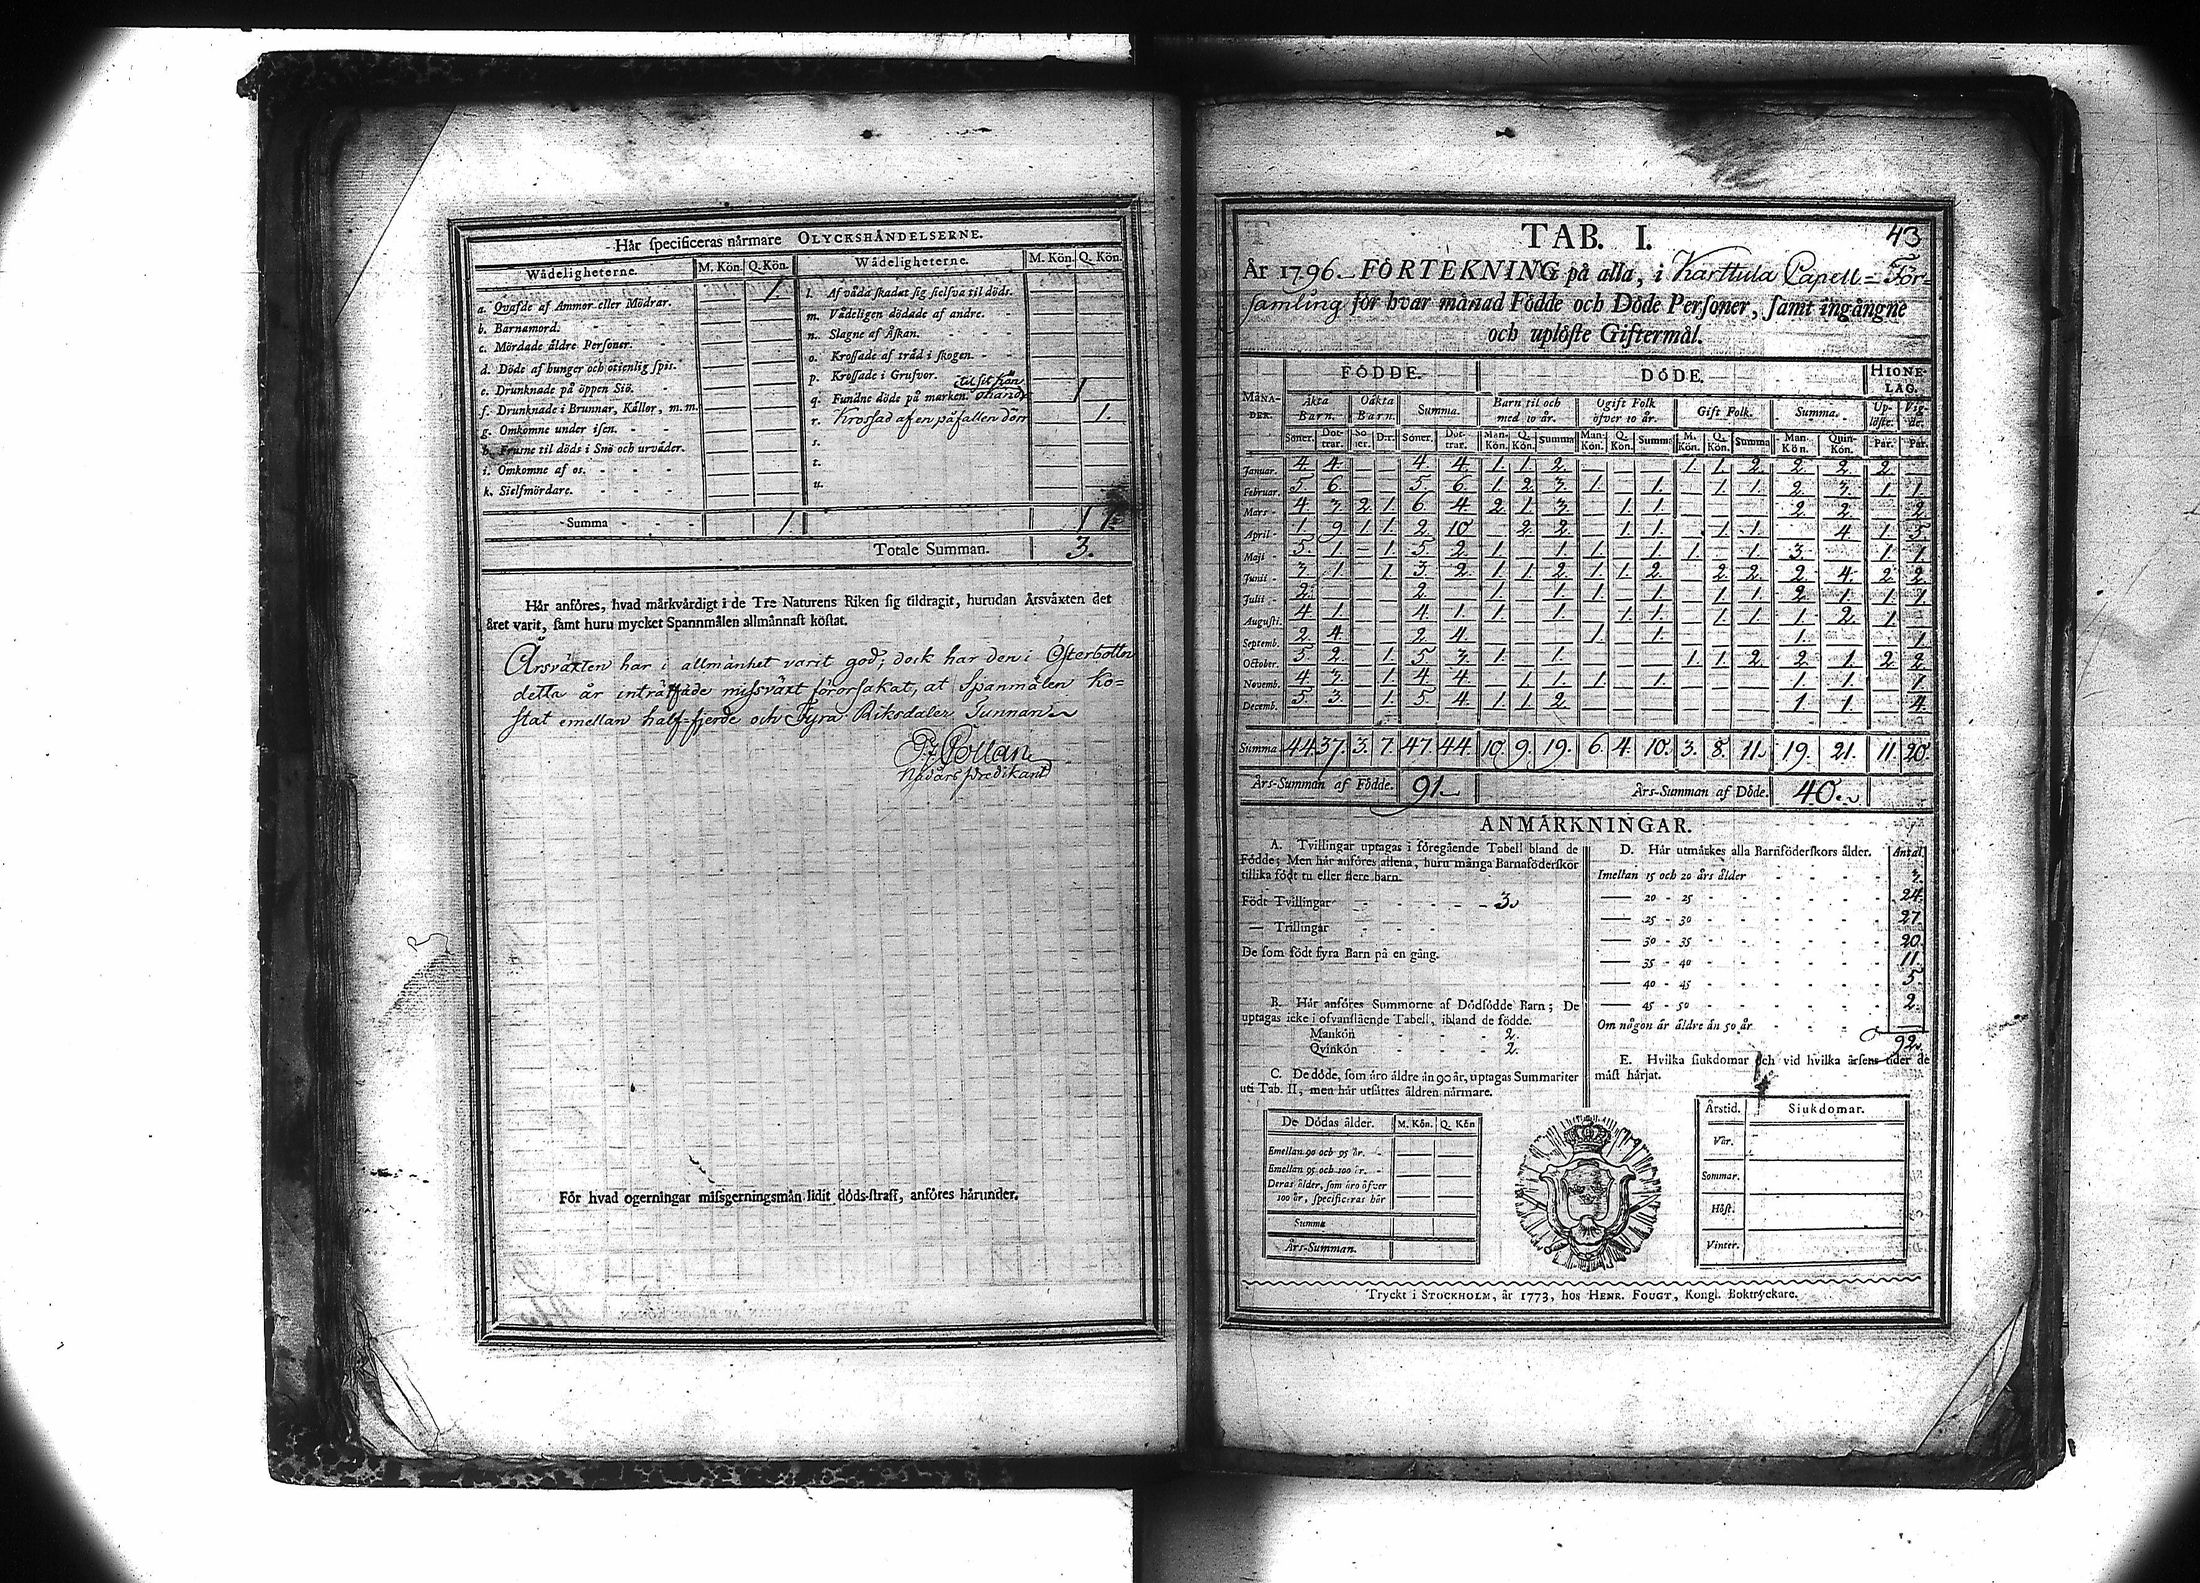 Hår specificeras nårmare OLYCKSHÅNDELSERNE.
Wådeligheterne. M. Kön. Q. Kön. Wådeligheterne. M. Kön. Q. Kön.
a. Qvafde af Ammor eller Mödrar. 1.
b. Barnamord.
c. Mördade åldre Personer.
d. Döde af hunger och otienlig spis.
e. Drunknade på öppen Siö.
f. Drunknade i Brunnar, Kållor, m. m.
g. Omkomne under isen.
h. Frusne til döds i Snö och urvåder.
i. Omkomne af os.
k. Sielfmördare.
l. Af våda skadat sig sielfva til döds.
m. Vådeligen dödade af andre.
n. Slagne af Åskan.
o. Krossade af tråd i skogen.
p. Krossade i Grufvor.
q. Fundne döde på marken. 1
r. Krossad af en påfallen dörr 1.
s.
t.
u.
Summa 1 1 1.
Totale Summan. 3.
Hår anföres, hvad mårkvårdigt i de Tre Naturens Riken sig tildragit, hurudan Årsvåxten det
året varit, samt huru mycket Spannmålen allmånnast kostat.
Årsväxten har i allmänhet varit god; dock har den i Österbottn
detta år inträffade missväxt förorsakat, at Spanmålen ko=
stat emellan half-fjerde och Fyra Riksdaler Tunnan
Collan
För hvad ogerningar missgerningsmån lidit döds-straff, anföres hårunder.
43
TAB. I.
År 1796. FÖRTEKNING på alla, i Karttula Capell=För=
samling för hvar månad Födde och Döde Personer, samt ingångne
och uplöste Giftermål.
FÖDDE. DÖDE. HIONE-LAG.
MÅNA-DER. Åkta Barn. Oåkta Barn. Summa. Barn til och med 10 år. Ogift Folk öfver 10 år. Gift Folk. Summa. Up-löste. Vig-de.
Söner. Dot-trar. So-ner. D:r. Söner. Dot-trar. Man-Kön. Q. Kön. Summa Man-Kön. Q. Kön. Summa M. Kön. Q. Kön. Summa Man Kön. Quin-Kön. Par. Par.
Januar. 4. 4. 4. 4. 1. 1. 2. 1. 1. 2. 2. 2. 2.
Februar. 5. 6. 5. 6. 1. 2. 3. 1. 1. 1. 1. 2. 3. 1. 1.
Mars 4. 3. 2. 1. 6. 4. 2. 1. 3. 1. 1. 2. 2. 2.
April 1. 9. 1. 1. 2. 10. 2. 2. 1. 1. 1. 1. 4. 1. 5.
Maji 5. 1. 1. 5. 2. 1. 1. 1. 1. 1. 1. 3. 1. 1.
Junii 3. 1. 1. 3. 2. 1. 1. 2. 1. 1. 2. 2. 2. 2. 4. 2. 2.
Julii 2. 2. 1. 1. 1. 1. 1. 1. 2. 1. 1. 1.
Augusti. 4. 1. 4. 1. 1. 1. 1. 1. 1. 1. 1. 2. 1.
Septemb. 2. 4. 2. 4. 1. 1. 1. 1.
October. 5. 2. 1. 5. 3. 1. 1. 1. 1. 2. 2. 1. 2. 2.
Novemb. 4. 3. 1. 4. 4. 1. 1. 1. 1. 1. 1. 1.
Decemb. 5. 3. 1. 5. 4. 1. 1. 2. 1. 1. 4.
Summa 44. 37. 3. 7. 47. 44. 10. 9. 19. 6. 4. 10. 3. 8. 11. 19. 21. 11. 20.
Års-Summan af Födde. 91. Års-Summan af Döde. 40.
ANMÅRKNINGAR.
A. Tvillingar uptagas i föregående Tabell bland de
Födde; Men hår anföres allena, huru många Barnaföderskor
tillika födt tu eller flere barn.
Födt Tvillingar 3.
— Trillingar
De som födt fyra Barn på en gång.
B. Hår anföres Summorne af Dödfödde Barn; De
uptagas icke i ofvanstående Tabell, ibland de födde.
Mankön 2.
Qvinkön 2.
C. De döde, som åro åldre ån 90 år, uptagas Summariter
uti Tab. II, men hår utsåttes åldren nårmare.
De Dödas ålder. M. Kön. Q. Kön
Emellan 90 och 95 år.
Emellan 95 och 100 år.
Deras ålder, som åro öfver
100 år, specificeras hår
Summa
Års-Summan.
D. Hår utmårkes alla Barnföderskors ålder. Antal
Imellan 15 och 20 års ålder 3.
— 20 - 25 24.
— 25 - 30 27.
— 30 - 35 20.
— 35 - 40 11.
— 40 - 45 5.
— 45 - 50 2.
Om någon år åldre ån 50 år
92.
E. Hvilka siukdomar och vid hvilka årsens tider de
måst hårjat.
Årstid. Siukdomar.
Vår.
Sommar.
Höst.
Vinter.
Tryckt i STOCKHOLM, år 1773, hos HENR. FOUGT, Kongl. Boktryckare.